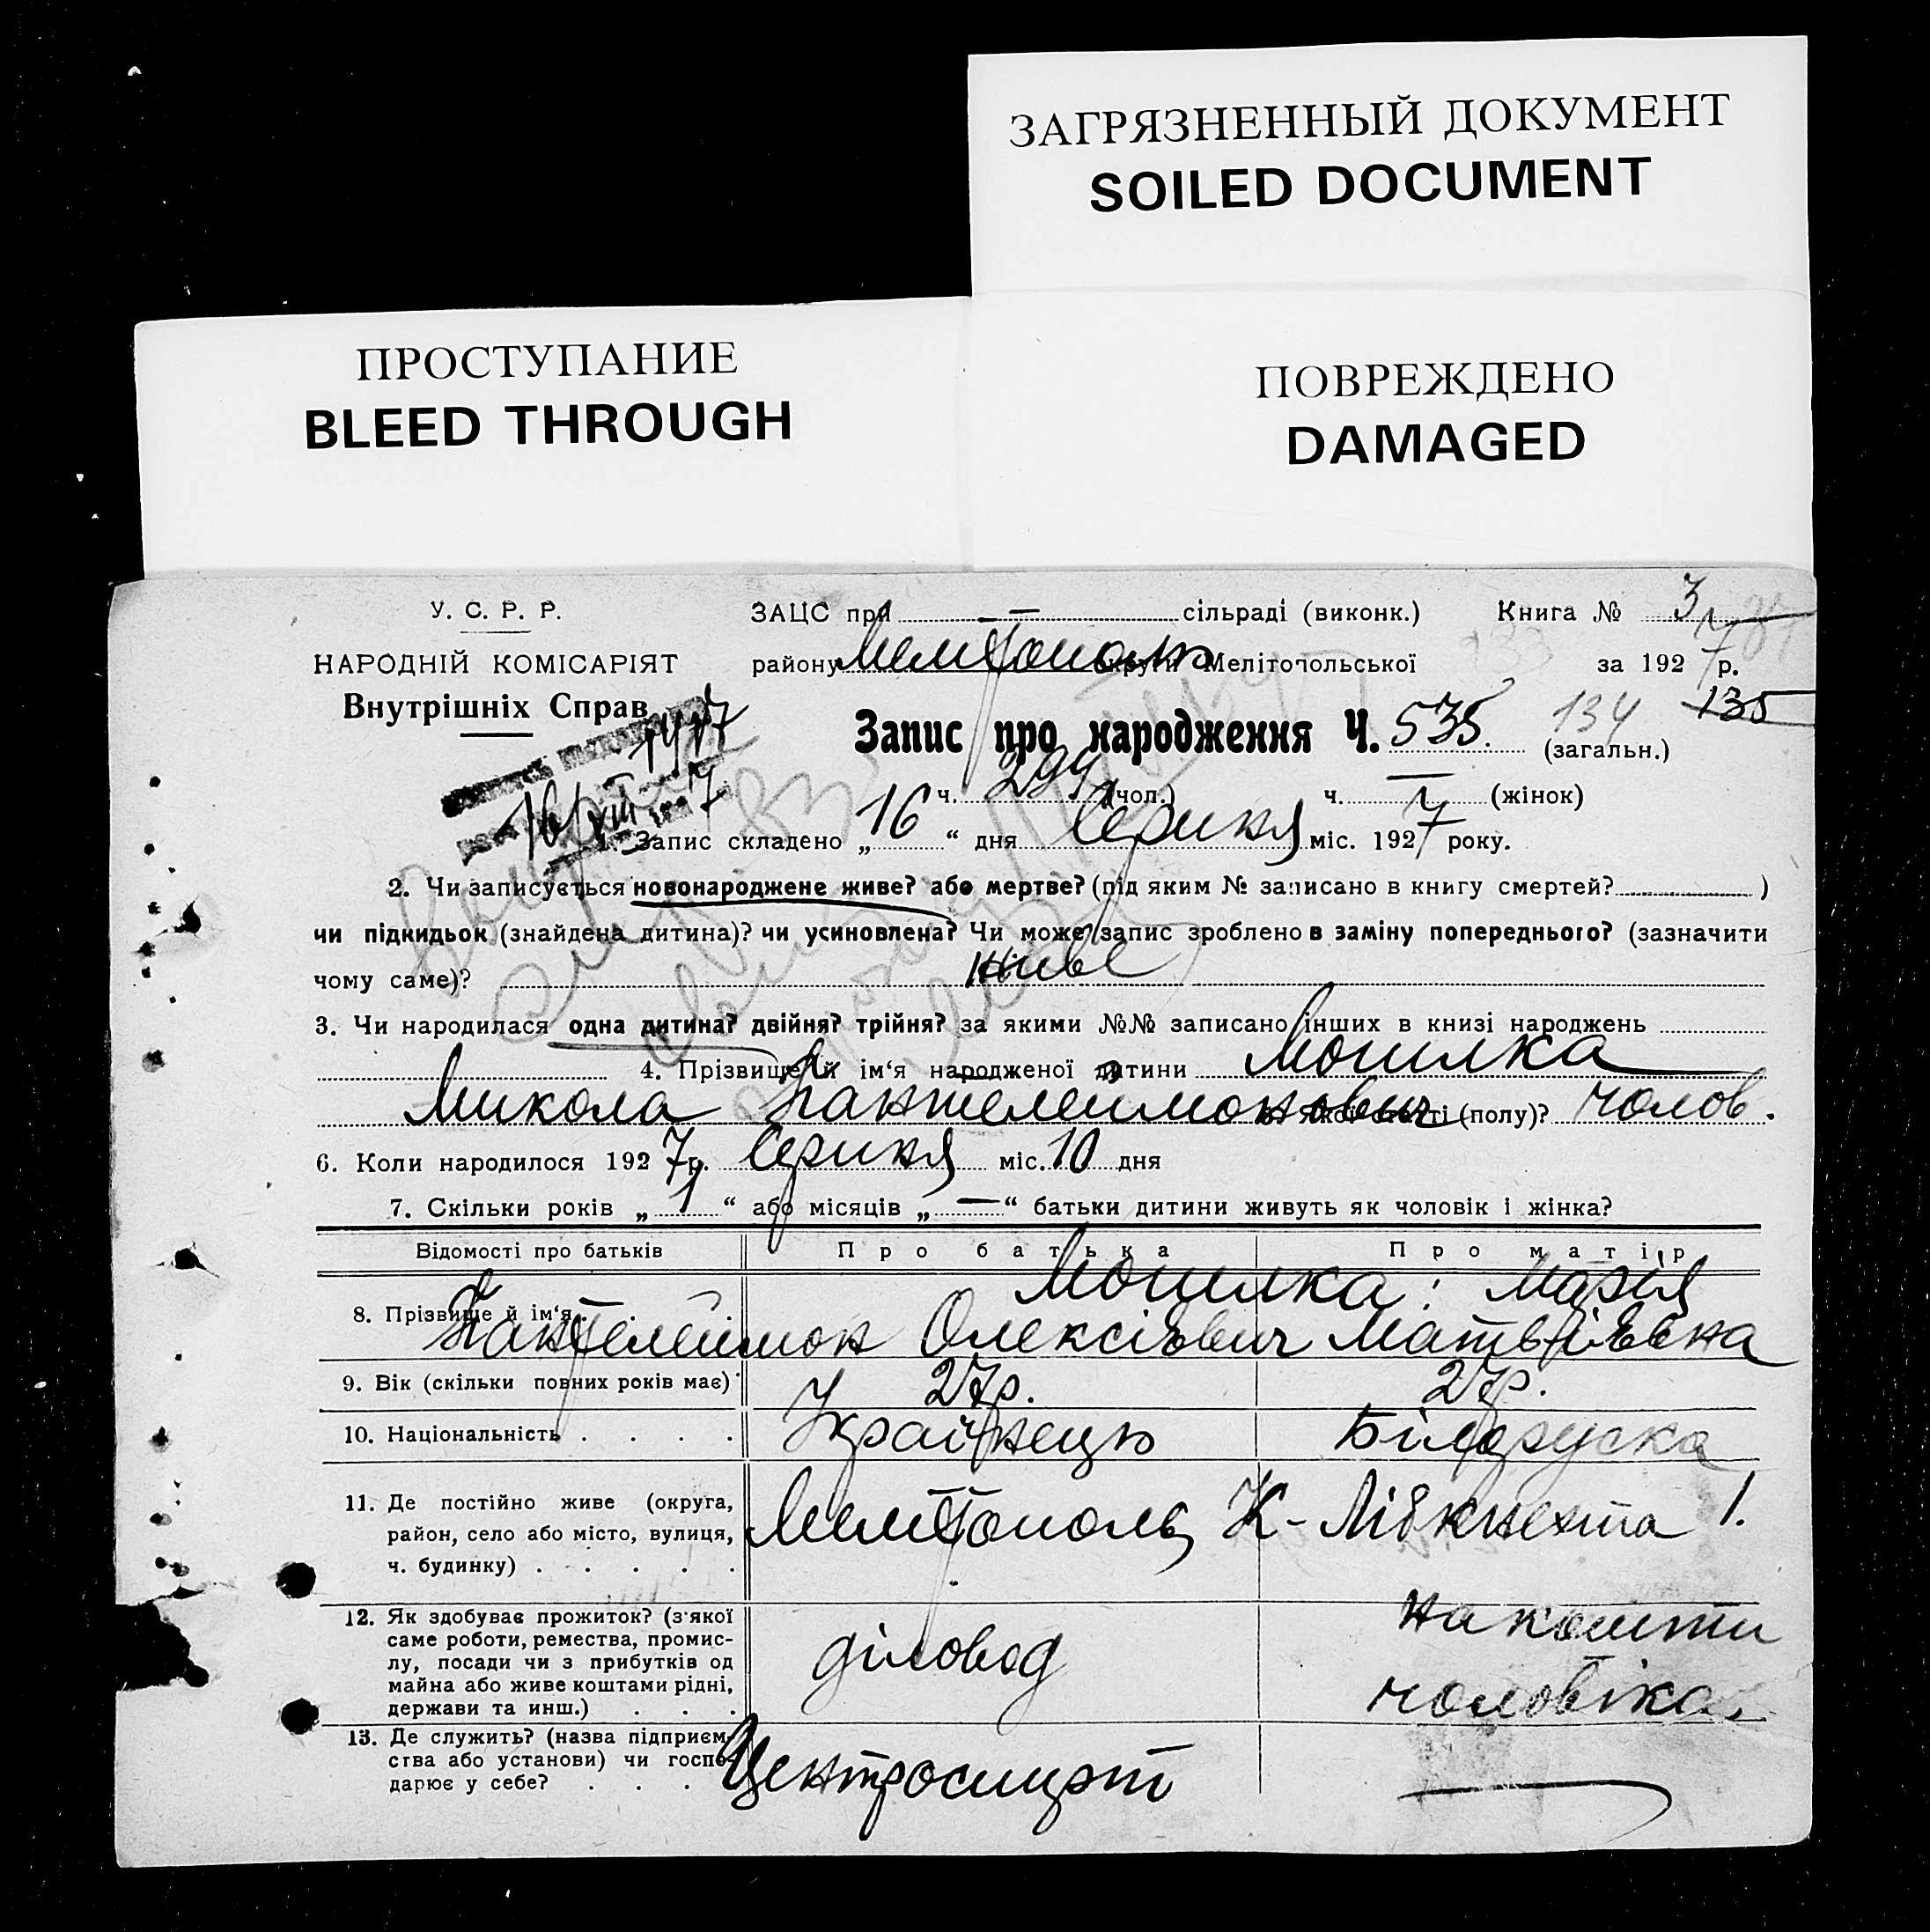 ЗАГРЯЗНЕННЫЙ ДОКУМЕНТ
SOILED DOCUMENT
ПРОСТУПАНИЕ
BLEED THROUGH
ПОВРЕЖДЕНО
DAMAGED
У. С. Р. Р.
НАРОДНІЙ КОМІСАРІЯТ
Внутрішніх Справ
ЗАЦС при — сільраді (виконк.) Книга № 3
району Мелітополь округи Мелітопольської за 1927 р.
Запис про народження Ч. 535. 134 135
(загальн.)
ч. 294 (чол.) ч. — (жінок)
1. Запис складено „ 16 “ дня Серпня міс. 1927 року.
2. Чи записується новонароджене живе? або мертве? (під яким № записано в книгу смертей? )
чи підкидьок (знайдена дитина)? чи усиновлена? Чи може запис зроблено в заміну попереднього? (зазначити
чому саме)? живе
3. Чи народилася одна дитина? двійня? трійня? за якими №№ записано інших в книзі народжень
4. Прізвище й ім‘я народженої дитини Могилка
Микола Пантелеймонович (полу)? чолов.
6. Коли народилося 1927 р. Серпня міс. 10 дня
7. Скільки років „ 1 “ або місяців „ — “ батьки дитини живуть як чоловік і жінка?
Відомості про батьків Про батька Про матір
8. Прізвище й ім‘я Могилка: Марія
Пантелеймон Олексієвич Матвіївна
9. Вік (скільки повних років має) 27 р. 27 р.
10. Національність . . . . Українець Білоруска
11. Де постійно живе (округа,
район, село або місто, вулиця,
ч. будинку) . . . . .
Мелітополь, К-Лібкнехта 1.
12. Як здобуває прожиток? (з якої
саме роботи, ремества, промис-
лу, посади чи з прибутків од
майна або живе коштами рідні,
держави та инш.) . . .
діловод
на кошти
чоловіка.
13. Де служить? (назва підприєм-
ства або установи) чи госпо-
дарює у себе? . . .
Центроспирт —